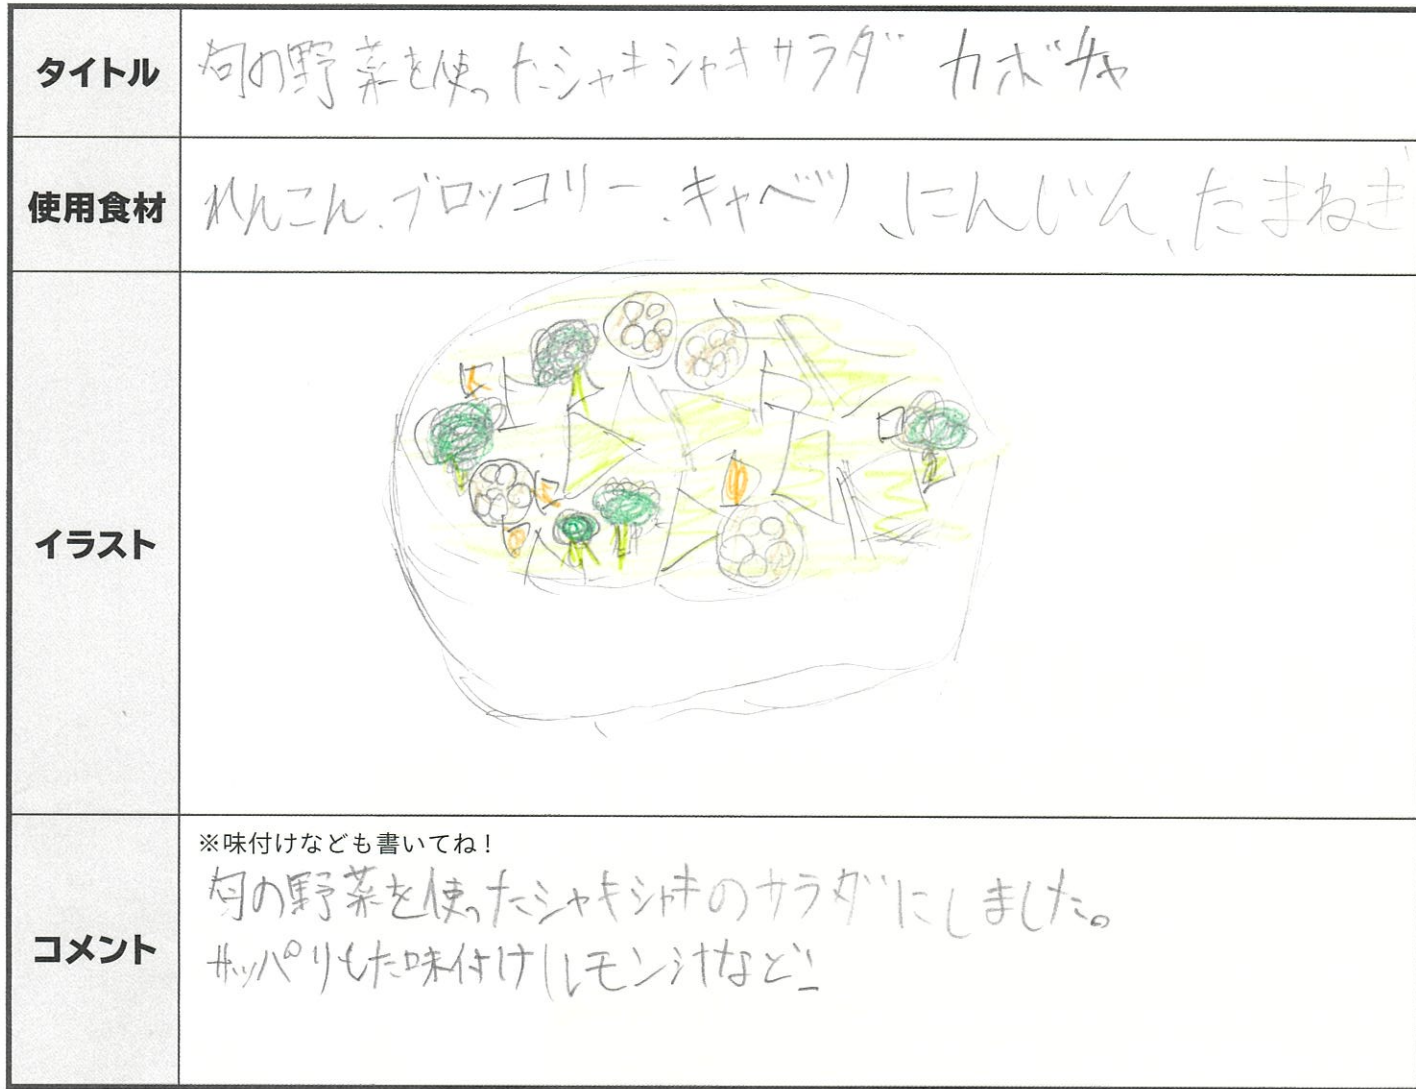 タイトル 旬の野菜を使ったシャキシャキサラダ カボチャ
使用食材 れんこん、ブロッコリー、キャベツ、にんじん、たまねき
イラスト
※味付けなども書いてね!
コメント 旬の野菜を使ったシャキシャキのサラダにしました。
サッパリした味付け(レモン汁など